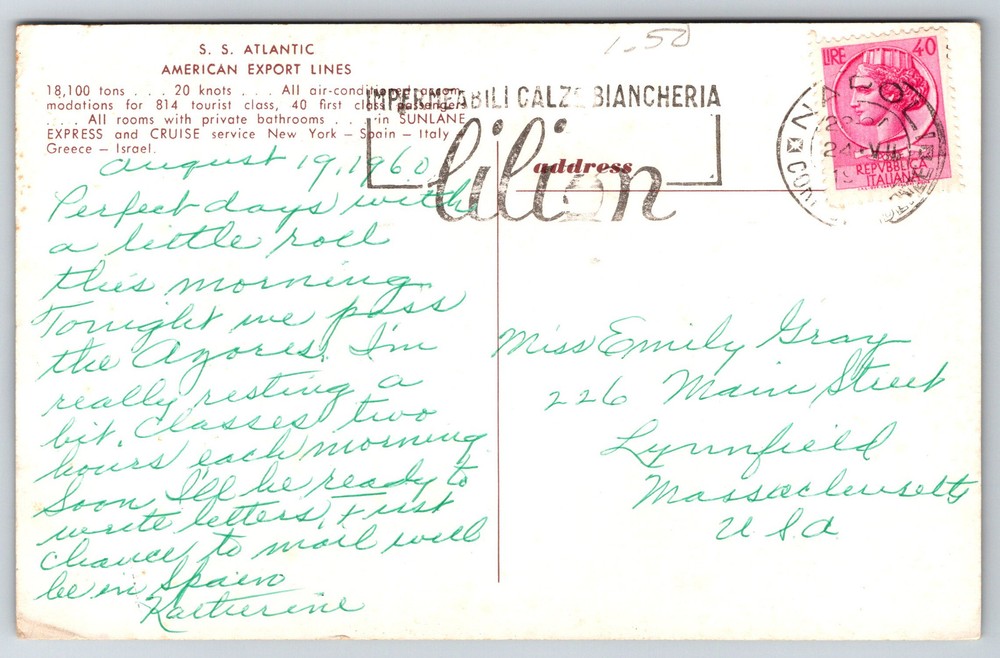 1.50
S. S. ATLANTIC
AMERICAN EXPORT LINES
18,100 tons . . . 20 knots . . . All air-conditioned accom-
modations for 814 tourist class, 40 first class passengers
. . . All rooms with private bathrooms . . . in SUNLANE
EXPRESS and CRUISE service New York – Spain – Italy
Greece – Israel.
IMPERMEABILI CALZE BIANCHERIA
lilion
address
LIRE 40
REPVBBLICA
ITALIANA
NAPOLI
24 VII
August 19, 1960
Perfect days with
a little roll
this morning
Tonight we pass
the Azores. I'm
really resting a
bit. Classes two
hours each morning
Soon I'll be ready to
write letters. First
chance to mail will
be in Spain
Katherine
Miss Emily Gray
226 Main Street
Lynnfield
Massachusetts
U.S.A